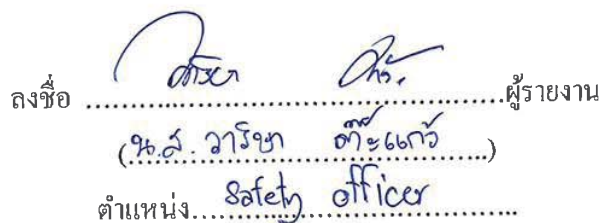 ลงชื่อ ........................................ผู้รายงาน
(น.ส. วาริษา ต๊ะแก้ว)
ตำแหน่ง...Safety officer...